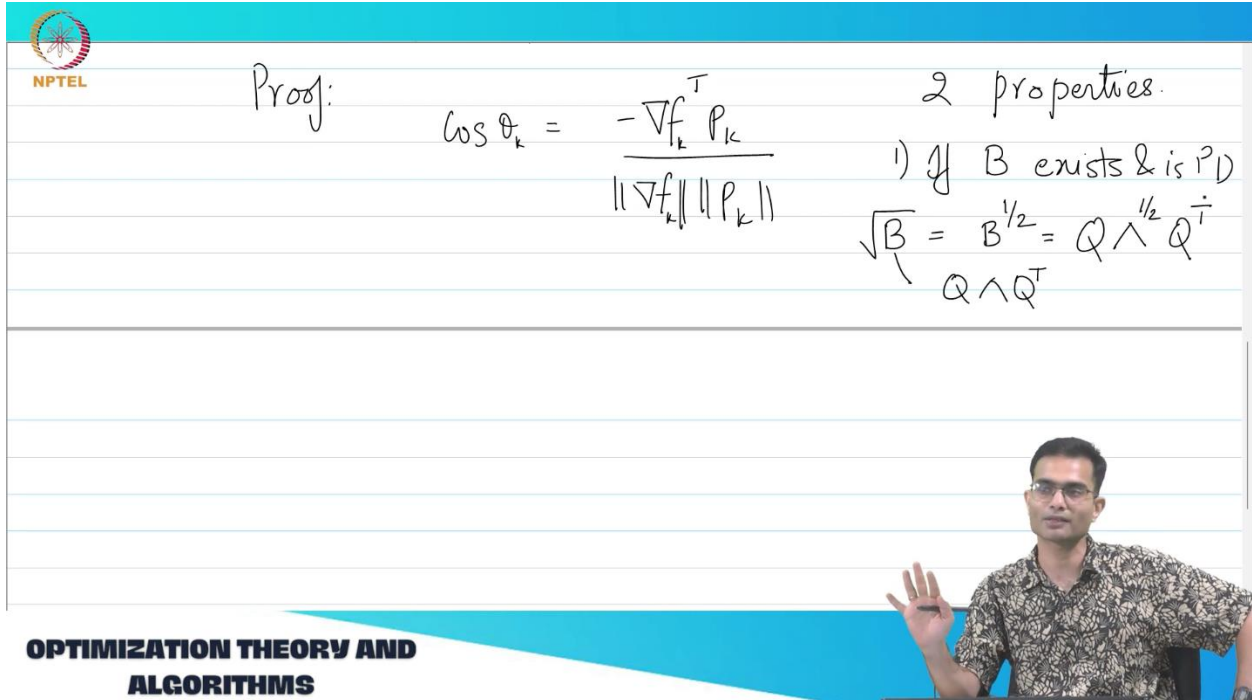 NPTEL
Proof:
cos θₖ = -∇fₖᵀ Pₖ
‖∇fₖ‖ ‖Pₖ‖
2 properties.
1) If B exists & is PD
√B = B^{1/2} = Q Λ^{1/2} Qᵀ
Q Λ Qᵀ
OPTIMIZATION THEORY AND
ALGORITHMS